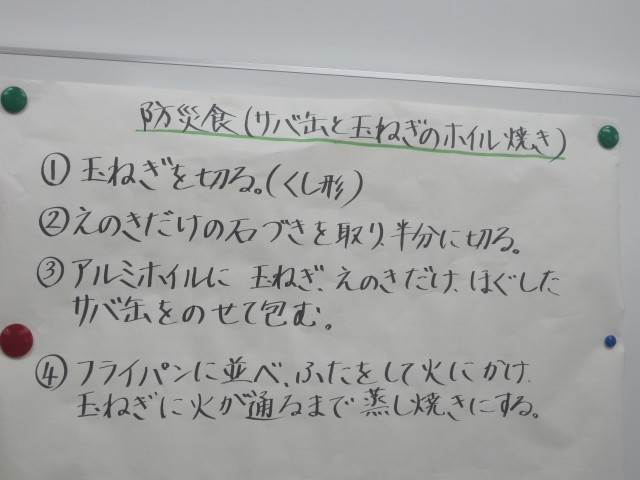 防災食(サバ缶と玉ねぎのホイル焼き)
①玉ねぎを切る。(くし形)
②えのきだけの石づきを取り、半分に切る。
③アルミホイルに 玉ねぎ、えのきだけ、ほぐした
サバ缶をのせて包む。
④フライパンに並べ、ふたをして火にかけ、
玉ねぎに火が通るまで蒸し焼きにする。